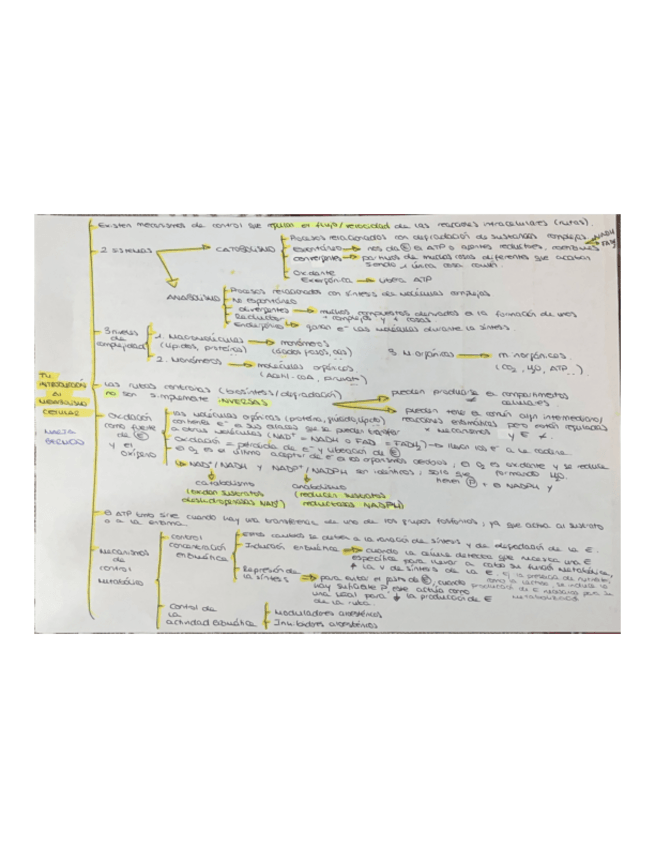 Existen mecanismos de control que regulan el flujo/velocidad de las reacciones intracelulares (rutas).
2 sistemas
CATABOLISMO
Procesos relacionados con degradación de sustancias complejas
Espontáneo → ATP o agentes reductores, coenzimas NADH FADH
convergentes → partimos de muchas cosas diferentes que acaban
siendo 1 única cosa común
Oxidante
Exergónica → libera ATP
ANABOLISMO
Procesos relacionados con síntesis de moléculas complejas
No espontáneo
divergentes → muchos compuestos derivados a la formación de unos
+ complejos y + cosas
Reductor
endergónico → ganar e⁻ las moléculas durante la síntesis
3 niveles de complejidad
1. Macromoléculas → monómeros
(lípidos, proteínas) (ácidos grasos, aas)
2. Monómeros → moléculas orgánicas
(Acetil-CoA, piruvato)
3. M. orgánicas → m. inorgánicas
(CO₂, H₂O, ATP...)
T1:
INTRODUCCIÓN
AL
METABOLISMO
CELULAR
Las rutas contrarias (biosíntesis/degradación)
no son simplemente INVERSAS
pueden producirse en compartimentos
≠ celulares
pueden tener en común algún intermediario/
reacciones enzimáticas pero están reguladas
x mecanismos y E ≠.
Oxidación
como fuente
de E
y el
oxígeno
las moléculas orgánicas (proteína, glúcido, lípido)
contienen e⁻ en sus enlaces que se pueden transferir
a otras moléculas (NAD⁺ = NADH o FAD = FADH₂) → llevan los e⁻ a la cadena.
Oxidación = pérdida de e⁻ y liberación de E
El O₂ es el último aceptor de e⁻ en los organismos aerobios, el O₂ es oxidante y se reduce
formando H₂O.
NAD⁺/NADH y NADP⁺/NADPH son idénticos, solo que
tienen P + el NADPH
catabolismo
(oxidan sustratos
deshidrogenasas NAD⁺)
anabolismo
(reducen sustratos
reductasas NADPH)
El ATP solo sirve cuando hay una transferencia de uno de los grupos fosfóricos, ya que activa al sustrato
o a la enzima.
Mecanismos
de
control
metabólico
control
concentración
enzimática
Estos cambios se deben a la variación de síntesis y de degradación de la E.
Inducción enzimática → cuando la célula detecta que necesita una E
específica para llevar a cabo su función metabólica,
↑ la v de síntesis de la E.
Represión de
la síntesis → para evitar el gasto de E, cuando
hay suficiente P este actúa como
una señal para ↓ la producción de E
de la ruta
Control de
la
actividad enzimática
Moduladores alostéricos
Inhibidores alostéricos